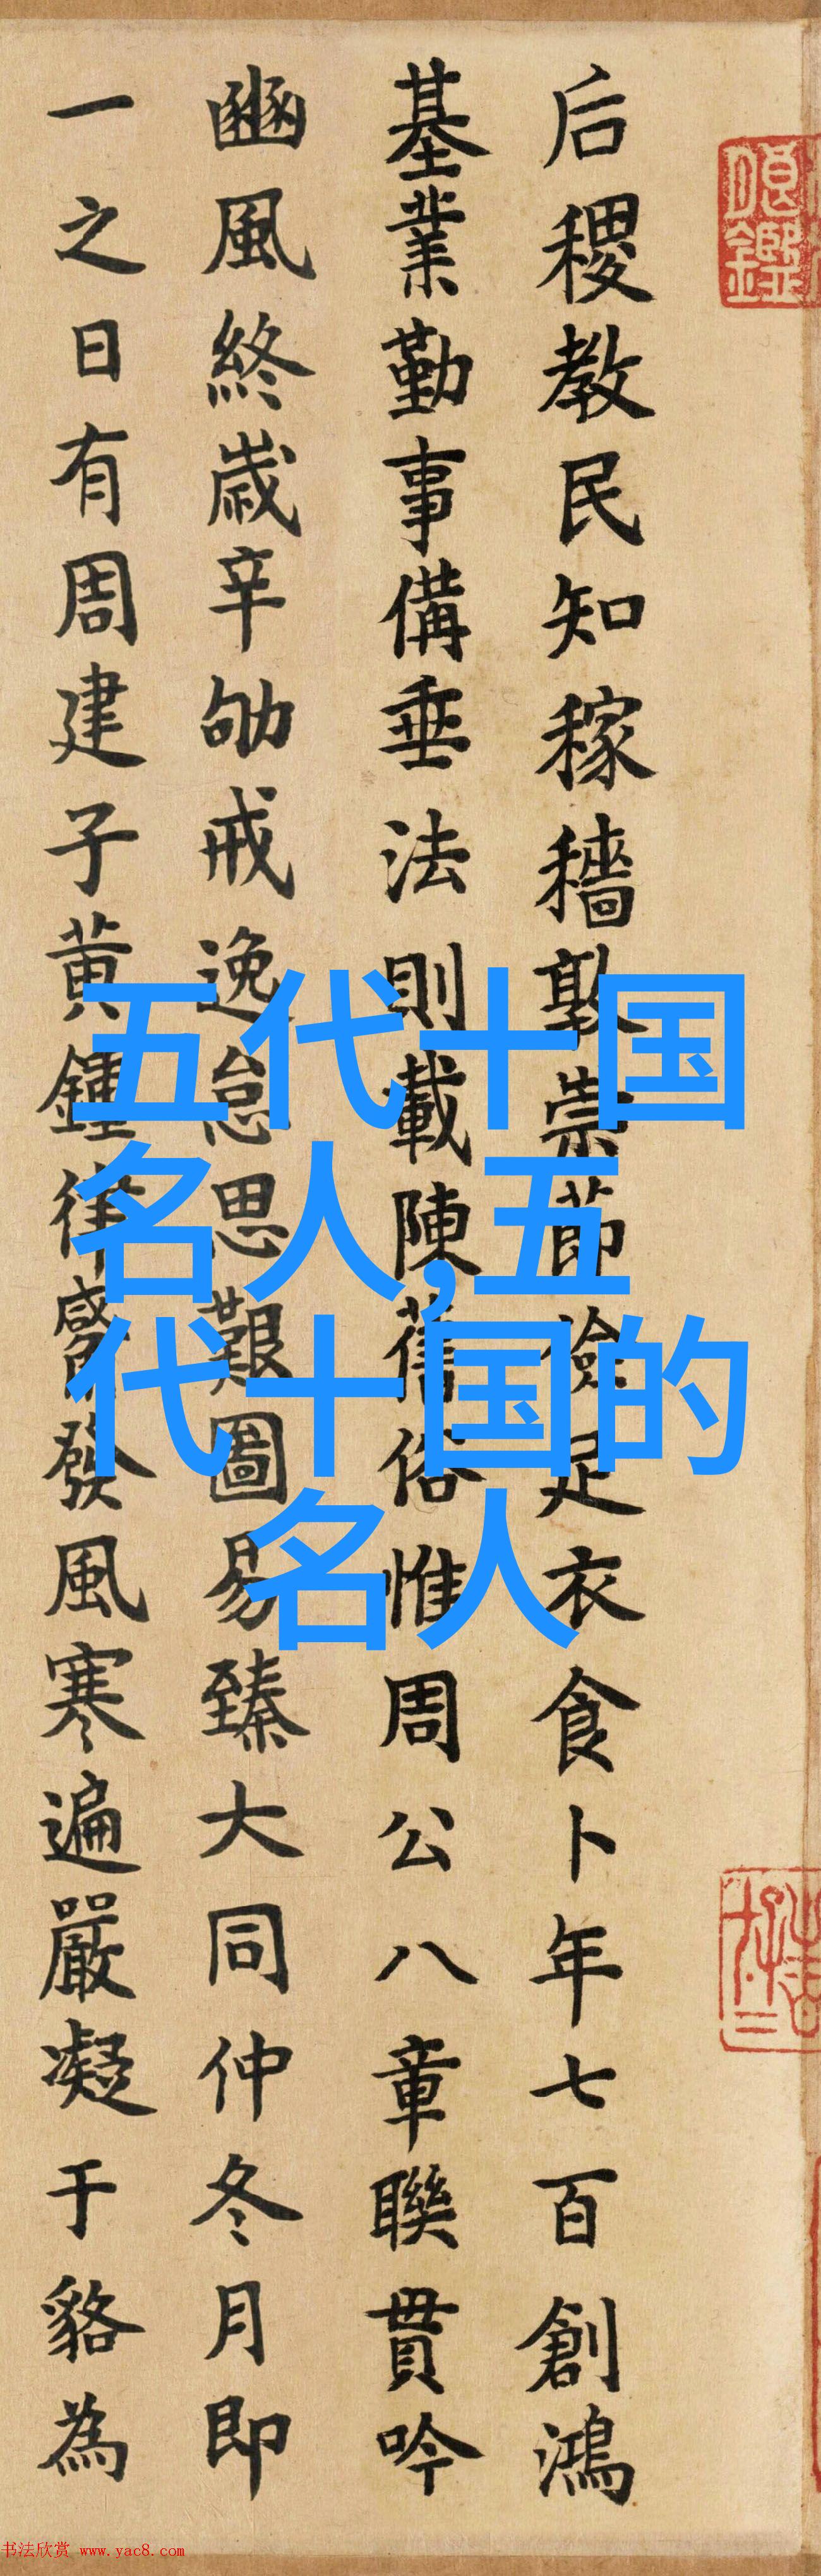 后稷教民知稼穡敦崇節儉足衣食卜年七百創鴻
基業勤事備垂法則載陳舊俗惟周公八章聯貫吟
豳風終歲辛劬戒逸怠思艱圖易臻大同仲冬月即
一之日有周建子黃鍾律觱發風寒遍嚴凝于貉為
五代十国
名人,五
代十国的
名人
书法欣赏 www.yac8.com